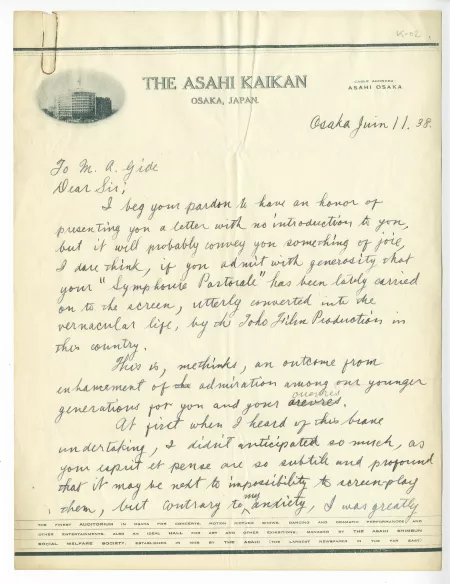 THE ASAHI KAIKAN
OSAKA, JAPAN.
CABLE ADDRESS:
ASAHI OSAKA
Osaka Juin 11. 38.
To M. A. Gide
Dear Sir;
I beg your pardon to have an honor of
presenting you a letter with no introduction to you,
but it will probably convey you something of joie,
I dare think, if you admit with generosity that
your "Symphonie Pastorale" has been lately carried
on to the screen, utterly converted into the
vernacular life, by the Toho Film Production in
this country.
This is, methinks, an outcome from
enhancement of admiration among our younger
oeuvres
generations for you and your
At first when I heard of this brave
undertaking, I didn't anticipated so much, as
your esprit et pensé are so subtile and profound
that it may be next to impossibility to screen-play
them, but contrary to my anxiety, I was greatly
THE FINEST AUDITORIUM IN OSAKA FOR CONCERTS, MOTION PICTURE SHOWS, DANCING AND DRAMATIC PERFORMANCES, AND
OTHER ENTERTAINMENTS. ALSO AN IDEAL HALL FOR ART AND OTHER EXHIBITIONS, MANAGED BY THE ASAHI SHIMBUN
SOCIAL WELFARE SOCIETY. ESTABLISHED IN 1926 BY THE ASAHI (THE LARGEST NEWSPAPER IN THE FAR EAST)